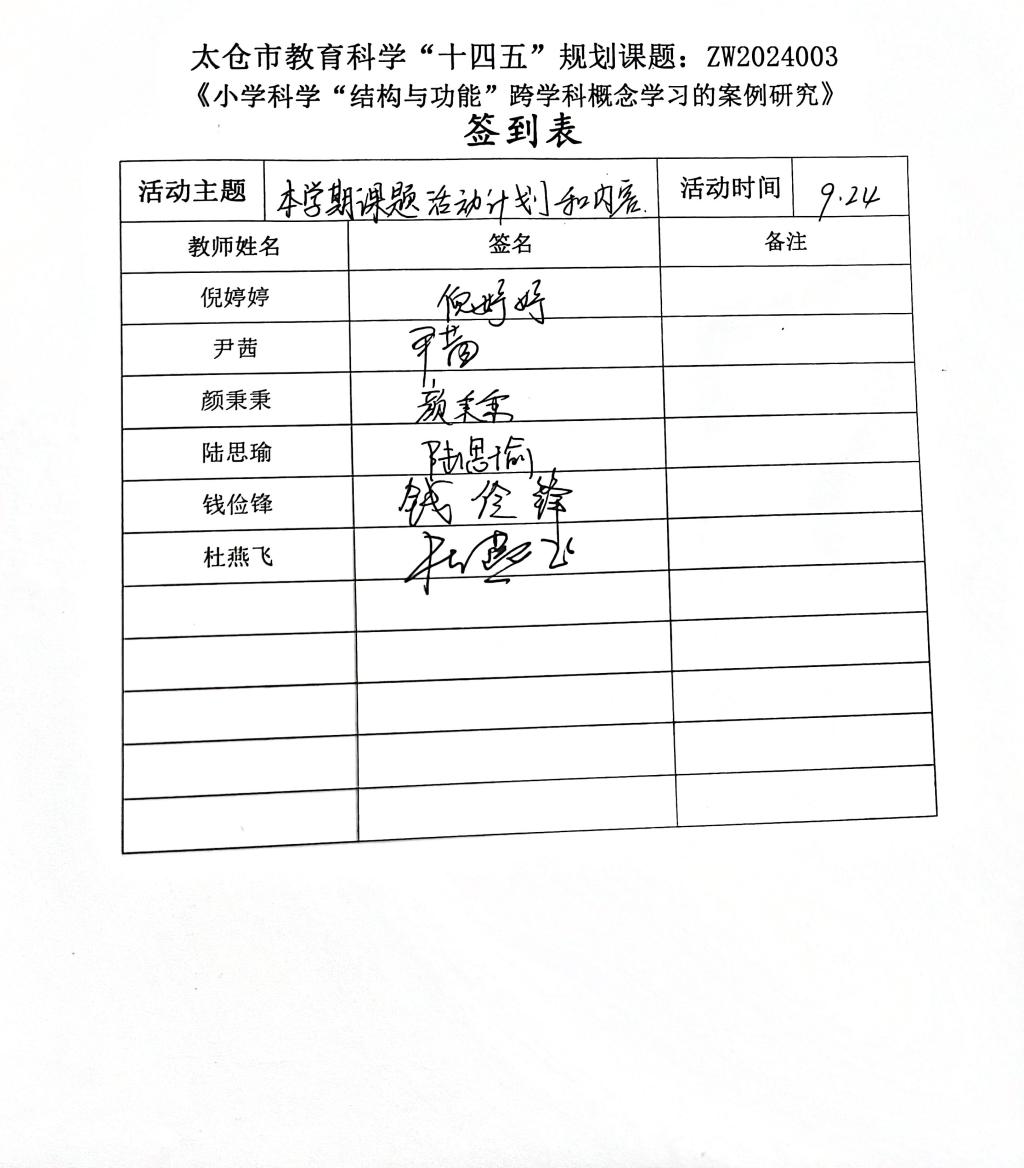 太仓市教育科学“十四五”规划课题：ZW2024003
《小学科学“结构与功能”跨学科概念学习的案例研究》
签到表
活动主题 本学期课题活动计划和内容. 活动时间 9.24
教师姓名 签名 备注
倪婷婷 倪婷婷
尹茜 尹茜
颜秉秉 颜秉秉
陆思瑜 陆思瑜
钱俭锋 钱俭锋
杜燕飞 杜燕飞